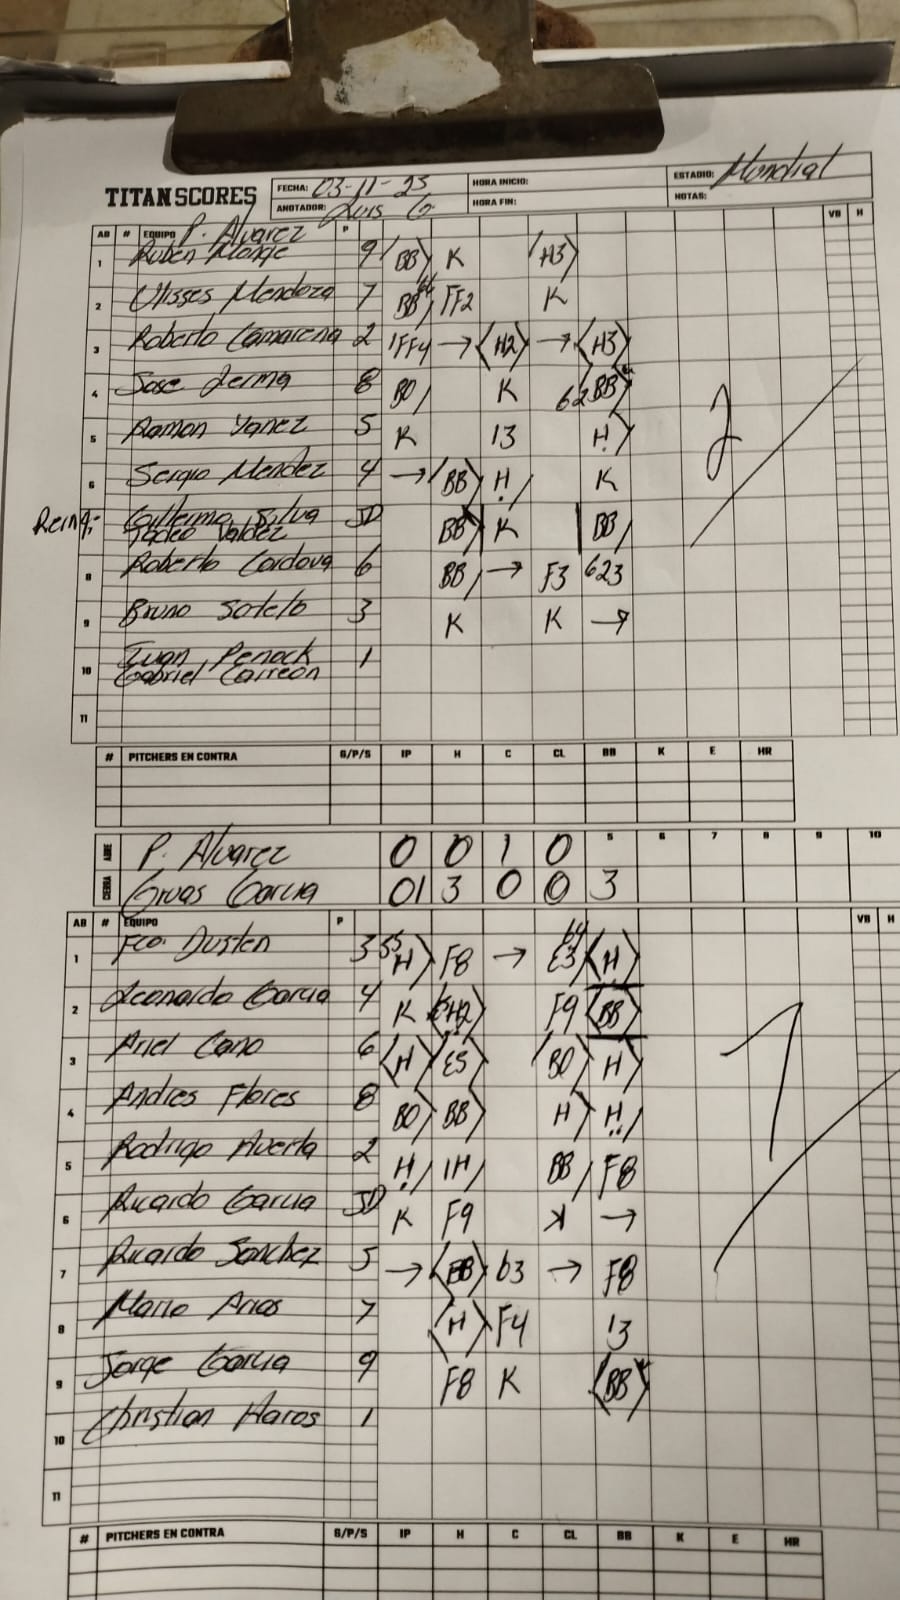 TITANSCORES
FECHA: 03-11-25 HORA INICIO: ESTADIO: Mundial
ANOTADOR: Luis G HORA FIN: NOTAS:
AB # EQUIPO P. Alvarez P VB H
1 Ruben Monge 9 BB K H3
2 Ulisses Mendoza 7 BB FF2 K
3 Roberto Camarena 2 1FF4 → H2 → H3
4 Jose Lerma 8 BO K 62 BB
5 Ramon Yanez 5 K 13 H
6 Sergio Mendez 4 → BB H K
7 Guillermo Silva JD BB K BB
Tadeo Valdez
8 Roberto Cordova 6 BB → F3 623
9 Bruno Sotelo 3 K K →
10 Ivan Penock 1
Gabriel Carreon
11
2
# PITCHERS EN CONTRA G/P/S IP H C CL BB K E HR
ABRE P. Alvarez 0 0 1 0 5 6 7 8 9 10
CIERRA Gruas Garcia 01 3 0 0 3
AB # EQUIPO P VB H
1 Fco. Dusten 3 H F8 → E3 H
2 Leonardo Garcia 4 K H2 F9 BB
3 Ariel Cano 6 H E5 BO H
4 Andres Flores 8 BO BB H H
5 Rodrigo Huerta 2 H 1H BB F8
6 Ricardo Garcia JD K F9 K →
7 Ricardo Sanchez 5 → BB 63 → F8
8 Mario Arias 7 H F4 13
9 Jorge Garcia 9 F8 K BB
10 Christian Haros 1
11
7
# PITCHERS EN CONTRA G/P/S IP H C CL BB K E HR